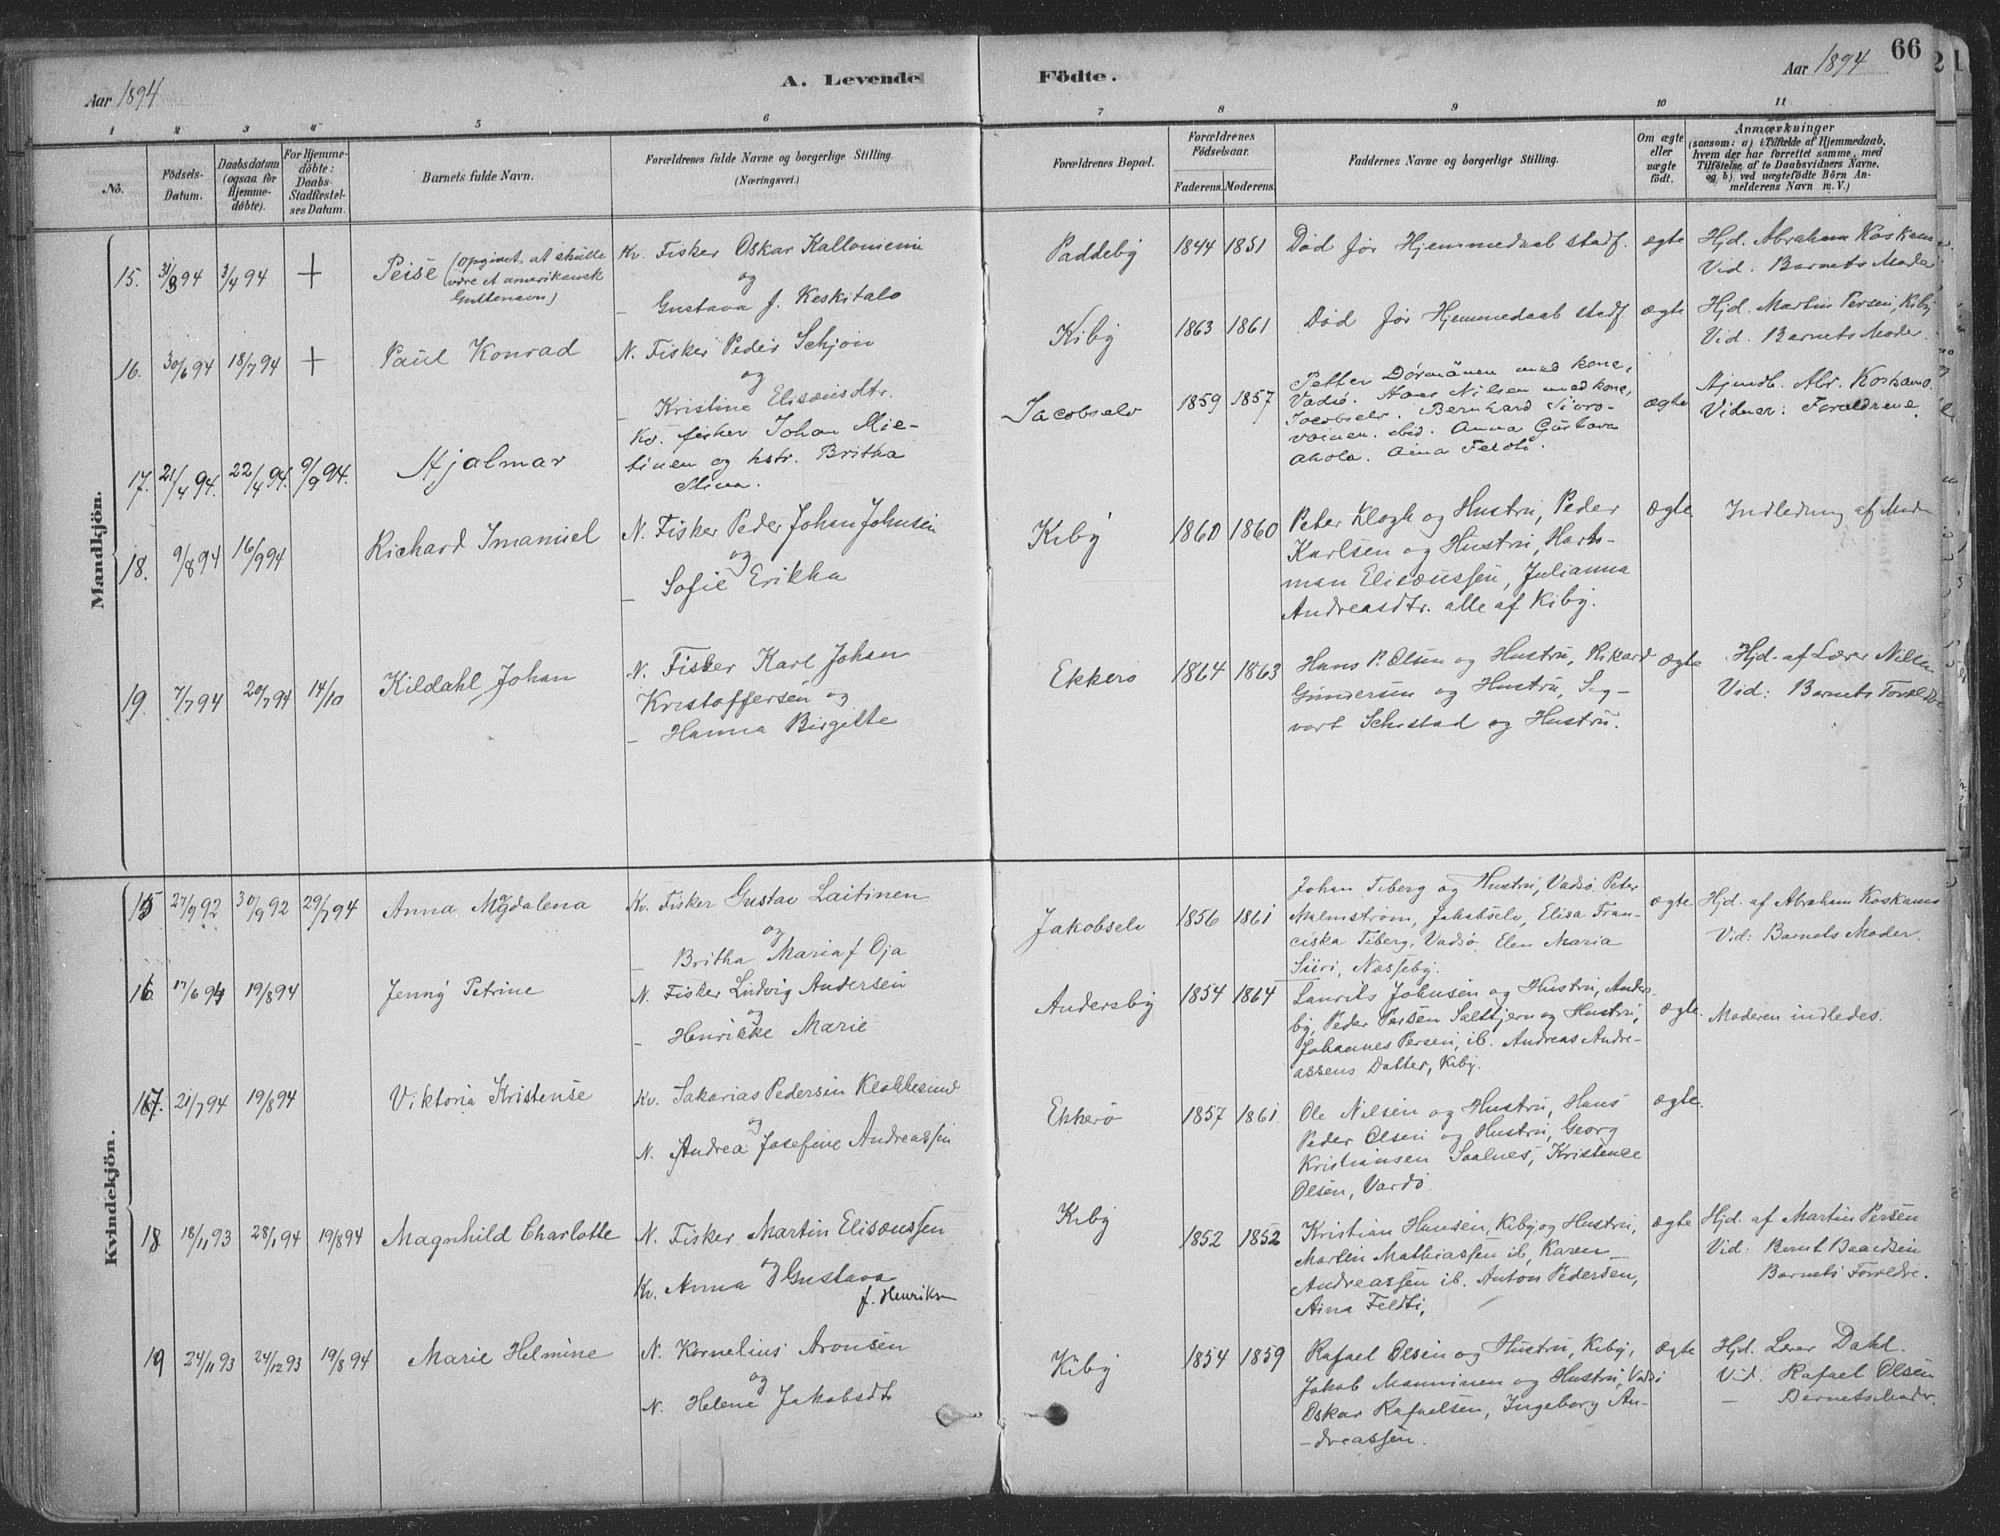 66
Aar 1894
A. Levende Födte.
Aar 1894
1 2 3 4 5 6 7 8 9 10 11
No.
Födsels-
Datum.
Daabsdatum
(ogsaa for
Hjemme-
döbte).
For Hjemme-
döbte:
Daabs-
Stadfæstel-
ses Datum.
Barnets fulde Navn.
Forældrenes fulde Navne og borgerlige Stilling.
(Næringsvei.)
Forældrenes Bopæl.
Forældrenes
Födselsaar.
Faderens. Moderens.
Faddernes Navne og borgerlige Stilling.
Om ægte
eller
uægte
födt.
Anmærkninger
(saasom: a) i Tilfælde af Hjemmedaab,
hvem der har forrettet samme, med
Tilföielse af to Daabsvidners Navne,
og b) ved uægtefödte Börn An-
melderens Navn m. V.)
Mandkjön.
15. 31/3 94 3/4 94 +
Peise (opgivet at skulle
være et amerikansk
Guttenavn)
Kv. Fisker Oskar Kalloniemi
og
– Gustava f. Keskitalo
Paddeby 1844 1851
Död før Hjemmedaab stadf.
ægte
Hjd. Abraham Koskamo
Vid. Barnets Moder
16. 30/6 94 18/7 94 +
Paul Konrad
N. Fisker Peder Schjon
og
– Kristine Elisæusdtr.
Kiby 1863 1861
Död før Hjemmedaab stadf
ægte
Hjd. Martin Persen, Kiby
Vid. Barnets Moder.
17. 21/4 94. 22/4 94. 9/9 94.
Hjalmar
Kv. fisker Johan Mie-
tinen og hstr. Britha
Stina.
Jacobselv 1859 1857
Petter Dørmänen med kone,
Vadsö. Hans Nilsen med kone,
Jacobselv. Bernhard
ibid. Anna Gustava
Ahola. Aina Feldti.
ægte
Hjmdb. Abr. Koskamo.
Vidner: Forældrene.
18. 9/8 94 16/9 94
Richard Imanuel
N. Fisker Peder Johan Johnsen
og
– Sofie Erikka
Kiby 1860 1860
Peter Klogh og Hustru, Peder
Karlsen og Hustru, Hart-
man Elisæussen, Julianna
Andreasdtr. alle af Kiby.
ægte
Indledning af Moder
19. 7/7 94 20/7 94 14/10
Kildahl Johan
N. Fisker Karl Johan
Kristoffersen og
– Hanna Birgitte
Ekkerö 1864 1863
Hans P. Olsen og Hustru, Rikard
Gundersen og Hustru, Sig-
vart Schistad og Hustru.
ægte
Hjd. af Lærer Nilsen
Vid: Barnets Forældre
Kvindekjön.
15 27/9 92 30/9 92 29/7 94
Anna Magdalena
Kv. Fisker Gustav Laitinen
og
– Britha Maria f Oja
Jakobselv 1856 1861
Johan Tiberg og Hustru, Vadsö. Peter
Malmström, Jakobselv, Elisa Fran-
ciska Tiberg, Vadsö, Elen Maria
Siiri, Næsseby.
ægte
Hjd. af Abraham Koskamo
Vid: Barnets Moder.
16 17/6 94 19/8 94
Jenny Petrine
N. Fisker Ludvig Andersen
og
– Henrikke Marie
Andersby 1854 1864
Laurits Johnsen og Hustru, Anders-
by, Peder Persen Saltbjern og Hustru,
Johannes Persen, ib. Andreas Andre-
assens Datter, Kiby.
ægte.
Moderen indledes.
17. 21/7 94 19/8 94
Viktoria Kristense
Kv. Sakarias Pedersen Klokkesund
og
N. Andrea Josefine Andreassen
Ekkerö 1857 1861
Ole Nilsen og Hustru, Hans
Peder Olsen og Hustru, Georg
Kristiansen Saalnes, Kristence
Olsen, Vardö.
ægte.
18 18/11 93 28/1 94 19/8 94
Magnhild Charlotte
N. Fisker Martin Elisæussen
og
Kv. Anna Gustava
f. Henriksn
Kiby 1852 1852
Kristian Hansen, Kiby og Hustru,
Martin Mathiassen ib, Karen
Andreassen ib. Anton Pedersen,
Aina Feldti,
ægte
Hjd. af Martin Persen
Vid: Bernt Baardsen
Barnets Forældre.
19 24/11 93 24/12 93 19/8 94
Marie Helmine
N. Kornelius Aronsen
og
N. Helene Jakobsdtr
Kiby 1854 1859
Rafael Olsen og Hustru, Kiby,
Jakob Manninen og Hustru, Vadsö
Oskar Rafaelsen, Ingeborg An-
dreassen.
ægte
Hjd. Lærer Dahl.
Vid: Rafael Olsen
– Barnets Moder.